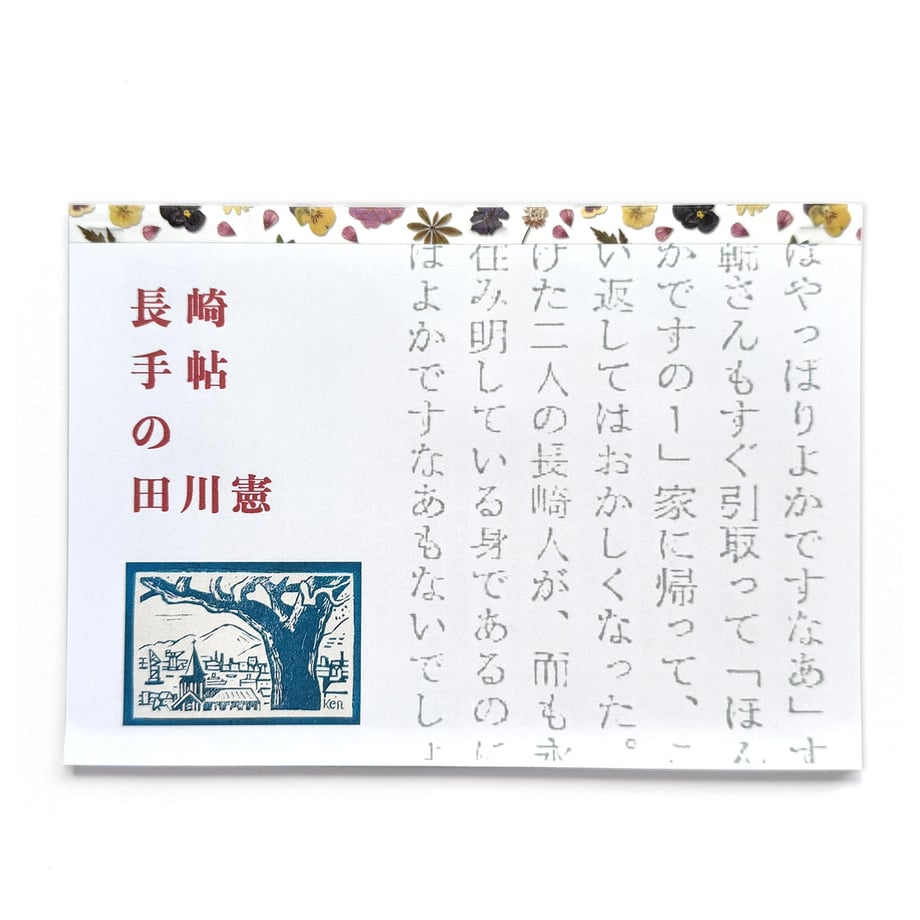 長崎
手帖
の
田川憲
はやっぱりよかですなあ」す
輪さんもすぐ引取って「ほん
かですのー」家に帰って、こ
い返してはおかしくなった。
けた二人の長崎人が、而も永
住み明している身であるのに
はよかですなあもないでしょ
Ken